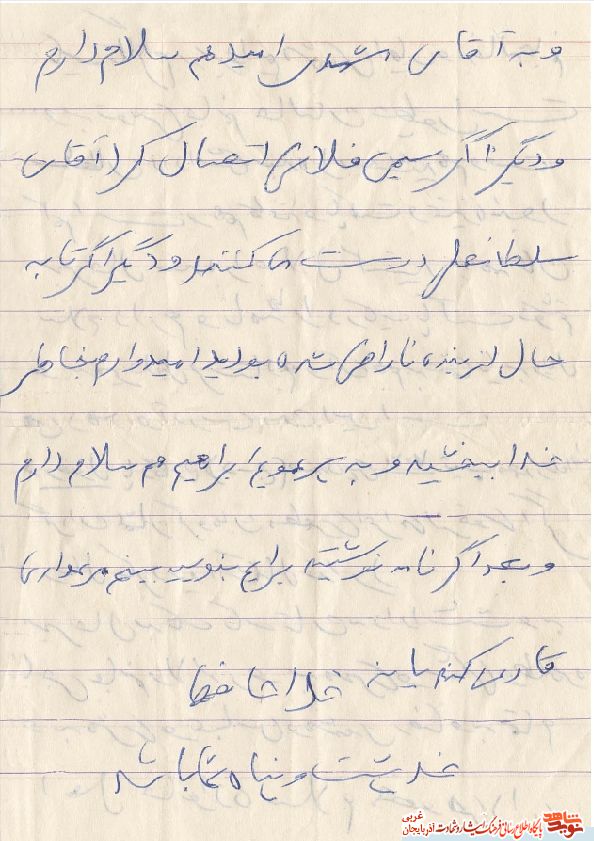 و به آقای رشیدی امید هم سلام دارم
و دیگر اگر سیمی فلاش اتصال کرد آقای
سلطانعلی درست کنند و دیگر اگر تا به
حال از بنده ناراحت شده بودید امیدوارم بخاطر
خدا ببخشید و به پسرعمویم ابراهیم هم سلام دارم
و بعد اگر نامه نوشتید برایم بنویسید ببینم
کند یا نه خدا حافظ
خدا پشت و پناه شما باشد
نوید شاهد
پایگاه اطلاع رسانی فرهنگ ایثار و شهادت آذربایجان غربی